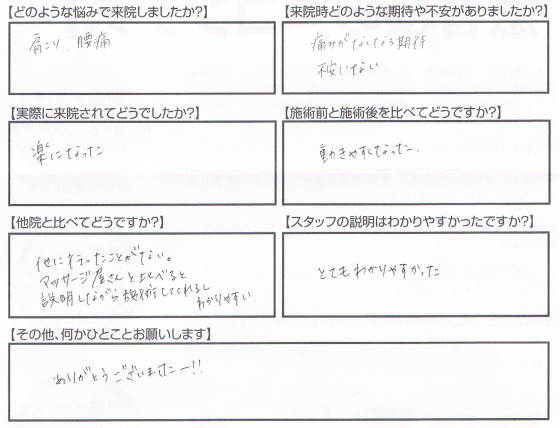 【どのような悩みで来院しましたか?】
肩こり、腰痛
【来院時どのような期待や不安がありましたか?】
痛みがなくなる期待
不安はない
【実際に来院されてどうでしたか?】
楽になった
【施術前と施術後を比べてどうですか?】
動きやすくなった.
【他院と比べてどうですか?】
他に行ったことがない。
マッサージ屋さんと比べると
説明しながら施術してくれるし
わかりやすい.
【スタッフの説明はわかりやすかったですか?】
とてもわかりやすかった
【その他、何かひとことお願いします】
ありがとうございましたー!!